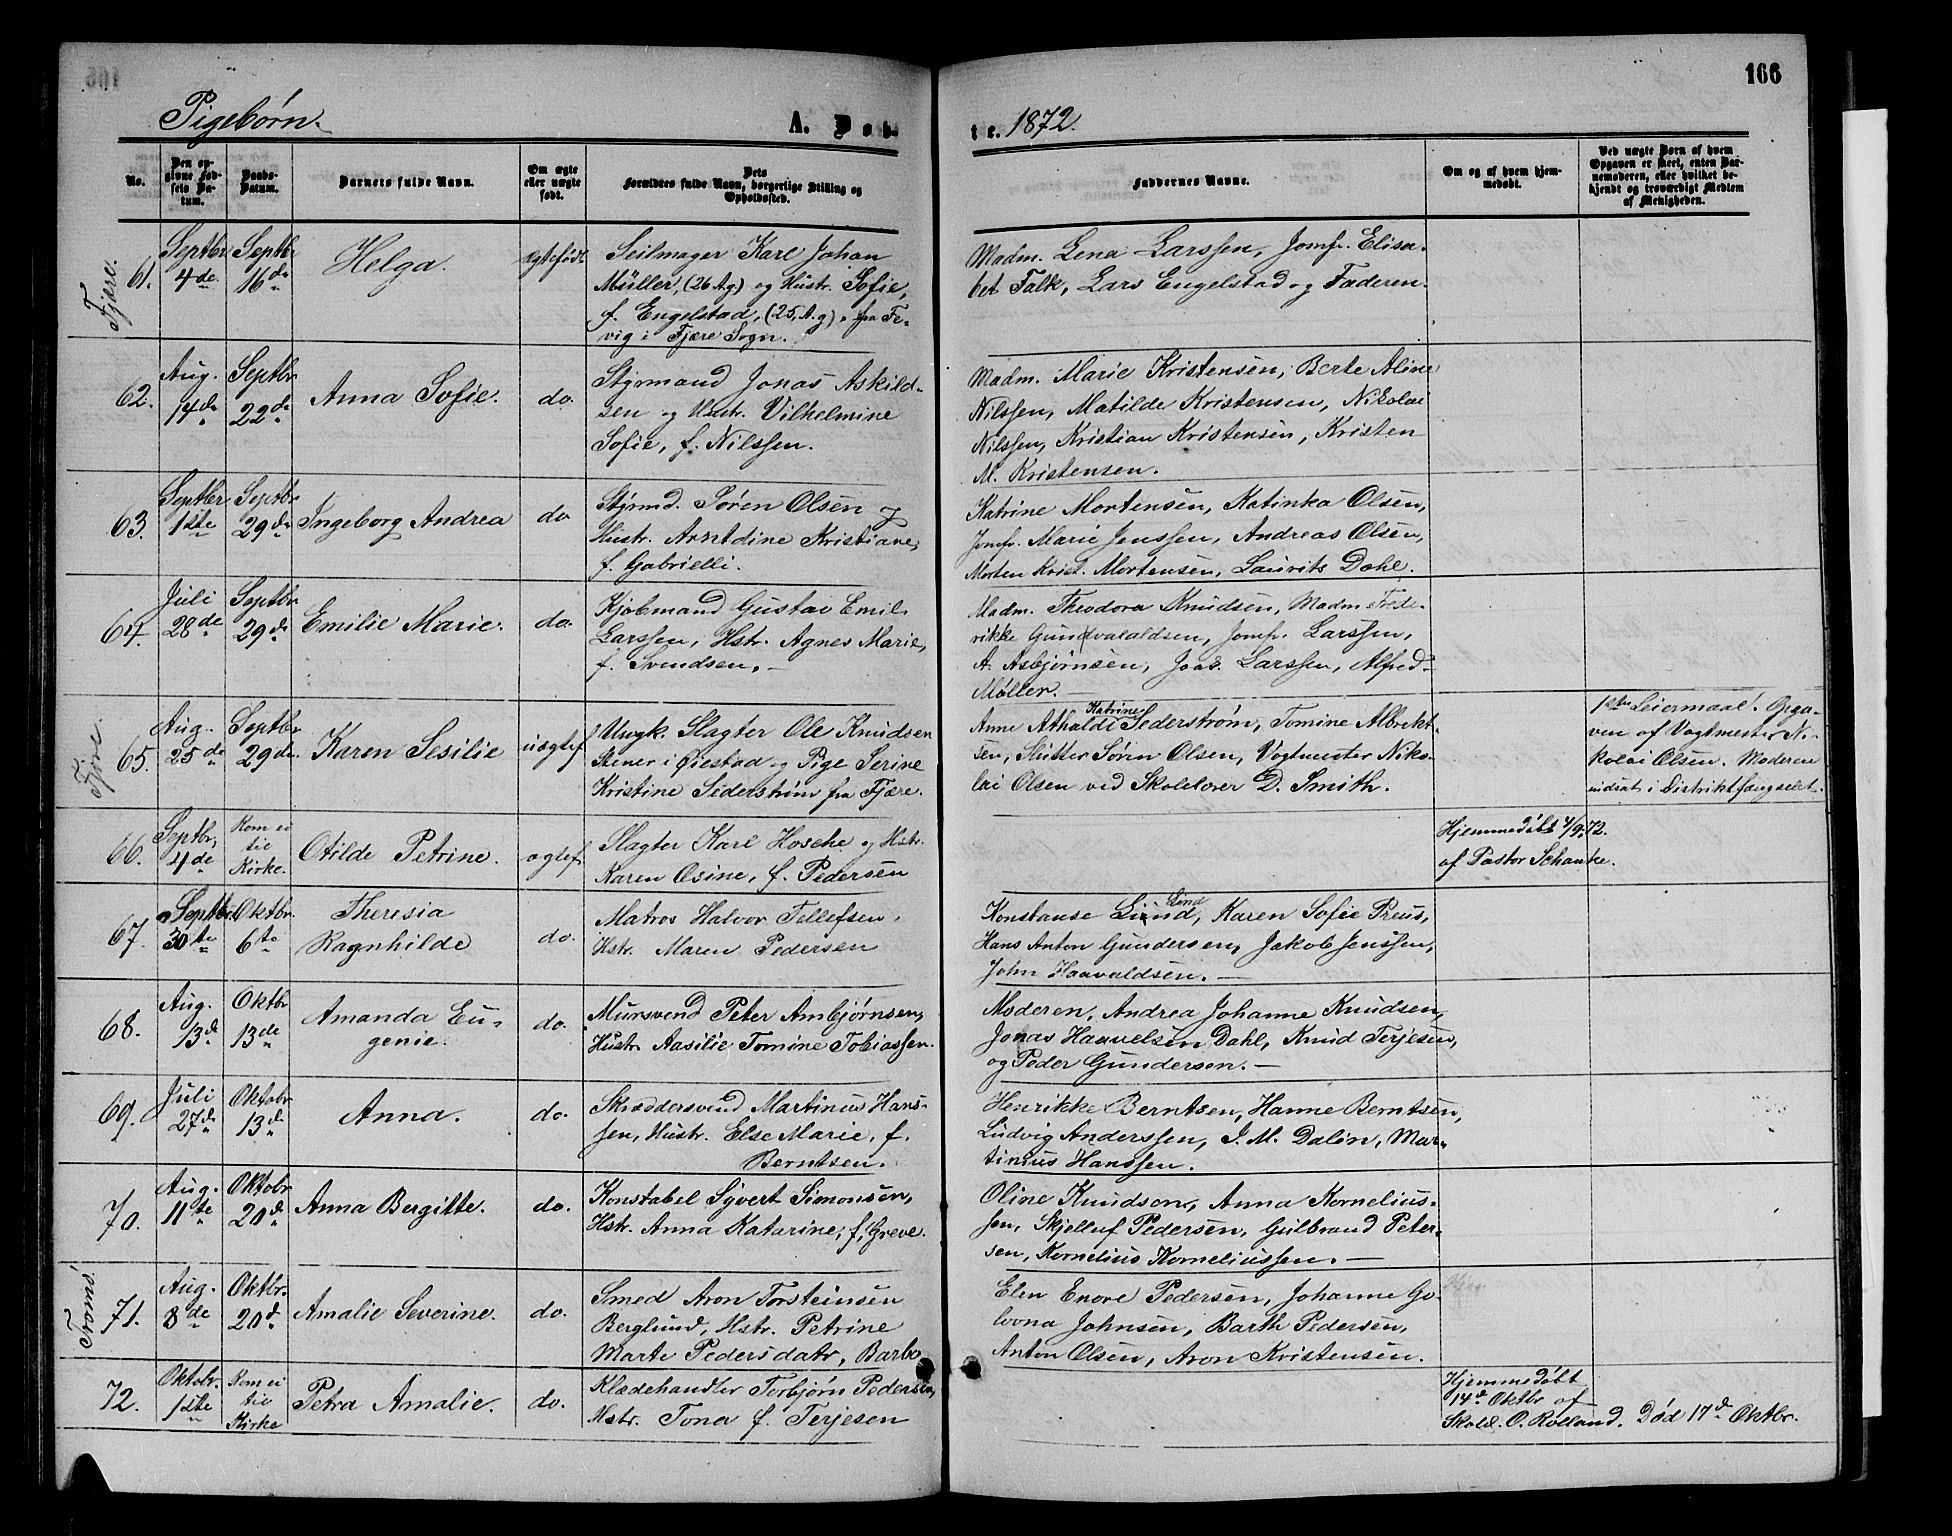 166
Pigebørn.
A. Døb-
te. 1872.
No.
Den op-
givne Fød-
sels Da-
tum.
Daabs-
Datum.
Barnets fulde Navn.
Om ægte
eller uægte
født.
Dets
Forældres fulde Navn, borgerlige Stilling og
Opholdssted.
Faddernes Navne.
Om og af hvem hjem-
medøbt.
Ved uægte Børn af hvem
Opgaven er skeet, enten Bar-
nemoderen, eller hvilket be-
kjendt og troværdigt Medlem
af Menigheden.
Fjære.
61.
Septbr
4de
Septbr
16de
Helga.
ægtefødt
Seilmager Karl Johan
Müller, (26 A.g) og Hustr. Sofie,
f. Engelstad, (25, A.g) fra Fe-
vig i Fjære Sogn.
Madm. Lena Larssen, Jomfr. Elisa-
bet Falk, Lars Engelstad og Faderen.
62.
Aug.
14de
Septbr
22de
Anna Sofie.
do.
Styrmand Jonas Askild-
sen og Hustr. Vilhelmine
Sofie, f. Nilssen.
Madm. Marie Kristensen, Berte Aline
Nilssen, Matilde Kristensen, Nikolai
Nilssen, Kristian Kristensen, Kristen
M. Kristensen.
63.
Septbr
1ste
Septbr
29de
Ingeborg Andrea
do
Styrmd. Søren Olsen og
Hustr. Arntdine Kristiane,
f. Gabrielli.
Katrine Mortensen, Katinka Olsen,
Jomfr. Marie Jenssen, Andreas Olsen,
Morten Krist. Mortensen, Laurits Dahl.
64.
Juli
28de
Septbr
29de
Emilie Marie.
do.
Kjøbmand Gustav Emil
Larssen, Hstr. Agnes Marie,
f. Svendsen.
Madm. Theodora Knudsen, Madm Frede-
rikke Gundvaldsen, Jomfr. Larssen,
A. Asbjørnsen, Joas. Larssen, Alfred
Møller.
Fjære.
65.
Aug.
25de
Septbr
29de.
Karen Sesilie
uægtef
Ungk. Slagter Ole Knudsen
Stener i Øiestad og Pige Serine
Kristine Sederstrøm fra Fjære.
Katrine
Anne Athalde Sederstrøm, Tomine Albrekt-
sen, Slutter Søren Olsen, Vogtmester Niko-
lai Olsen ved Skolelærer D. Smith.
1ste Leiermaal. Opga-
ven af Vagtmester Ni-
kolai Olsen. Moderen
indsat i Distriktfængselet.
66.
Septbr,
4de
Kom ei
til
Kirke.
Otilde Petrine.
ægtef
Slagter Karl Hosche og Hstr.
Karen Osine, f. Pedersen
Hjemmedøbt 4/9 72.
af Pastor Schanke.
67.
Septbr
30te
Oktbr.
6te
Theresia
Ragnhilde
do.
Matros Halvor Tellefsen,
Hstr. Maren Pedersen
Lind
Konstanse Lind, Karen Sofie Preus,
Hans Anton Gundersen, Jakob Jenssen,
John Haavaldsen.
68.
Aug.
13de
Oktbr
13de
Amanda Eu-
genie.
do.
Mursvend Peter Ambjørnsen,
Hustr. Aasilie Tomine Tobiassen.
Moderen, Andrea Johanne Knudsen,
Jonas Haavelsen Dahl, Knud Terjesen,
og Peder Gundersen.
69.
Juli
27de
Oktobr
13de
Anna.
do.
Skræddersvend Martinus Hans-
sen, Hustr. Else Marie, f.
Berntsen.
Henrikke Berntsen, Hanne Berntsen,
Ludvig Anderssen, I. M. Dalin, Mar-
tinius Hanssen.
70.
Aug.
11te
Oktobr
20de
Anna Bergitte.
do.
Konstabel Syvert Simonsen,
Hstr. Anna Katarine, f, Greve.
Oline Knudson, Anna Kornelius-
sen, Skjelluf Pedersen, Gulbrand Peter-
sen, Kornelius Korneliussen.
Tromø.
71.
Aug.
8de
Oktbr.
20de
Amalie Severine.
do.
Smed Aron Torsteinsen
Berglund, Hstr. Petrine
Marte Pedersdatr, Barbo
Elen Enore Pedersen, Johanne Go-
vona Johnsen, Barth Pedersen,
Anton Olsen, Aron Kristensen.
72.
Oktobr.
1ste
Kom ei
til
Kirke
Petra Amalie.
do.
Klædehandler Torbjørn Pedersen,
Hstr. Tona f. Terjesen
Hjemmedøbt
14de Oktbr af
Skolel. O. Rolland. Død 17de Oktbr.